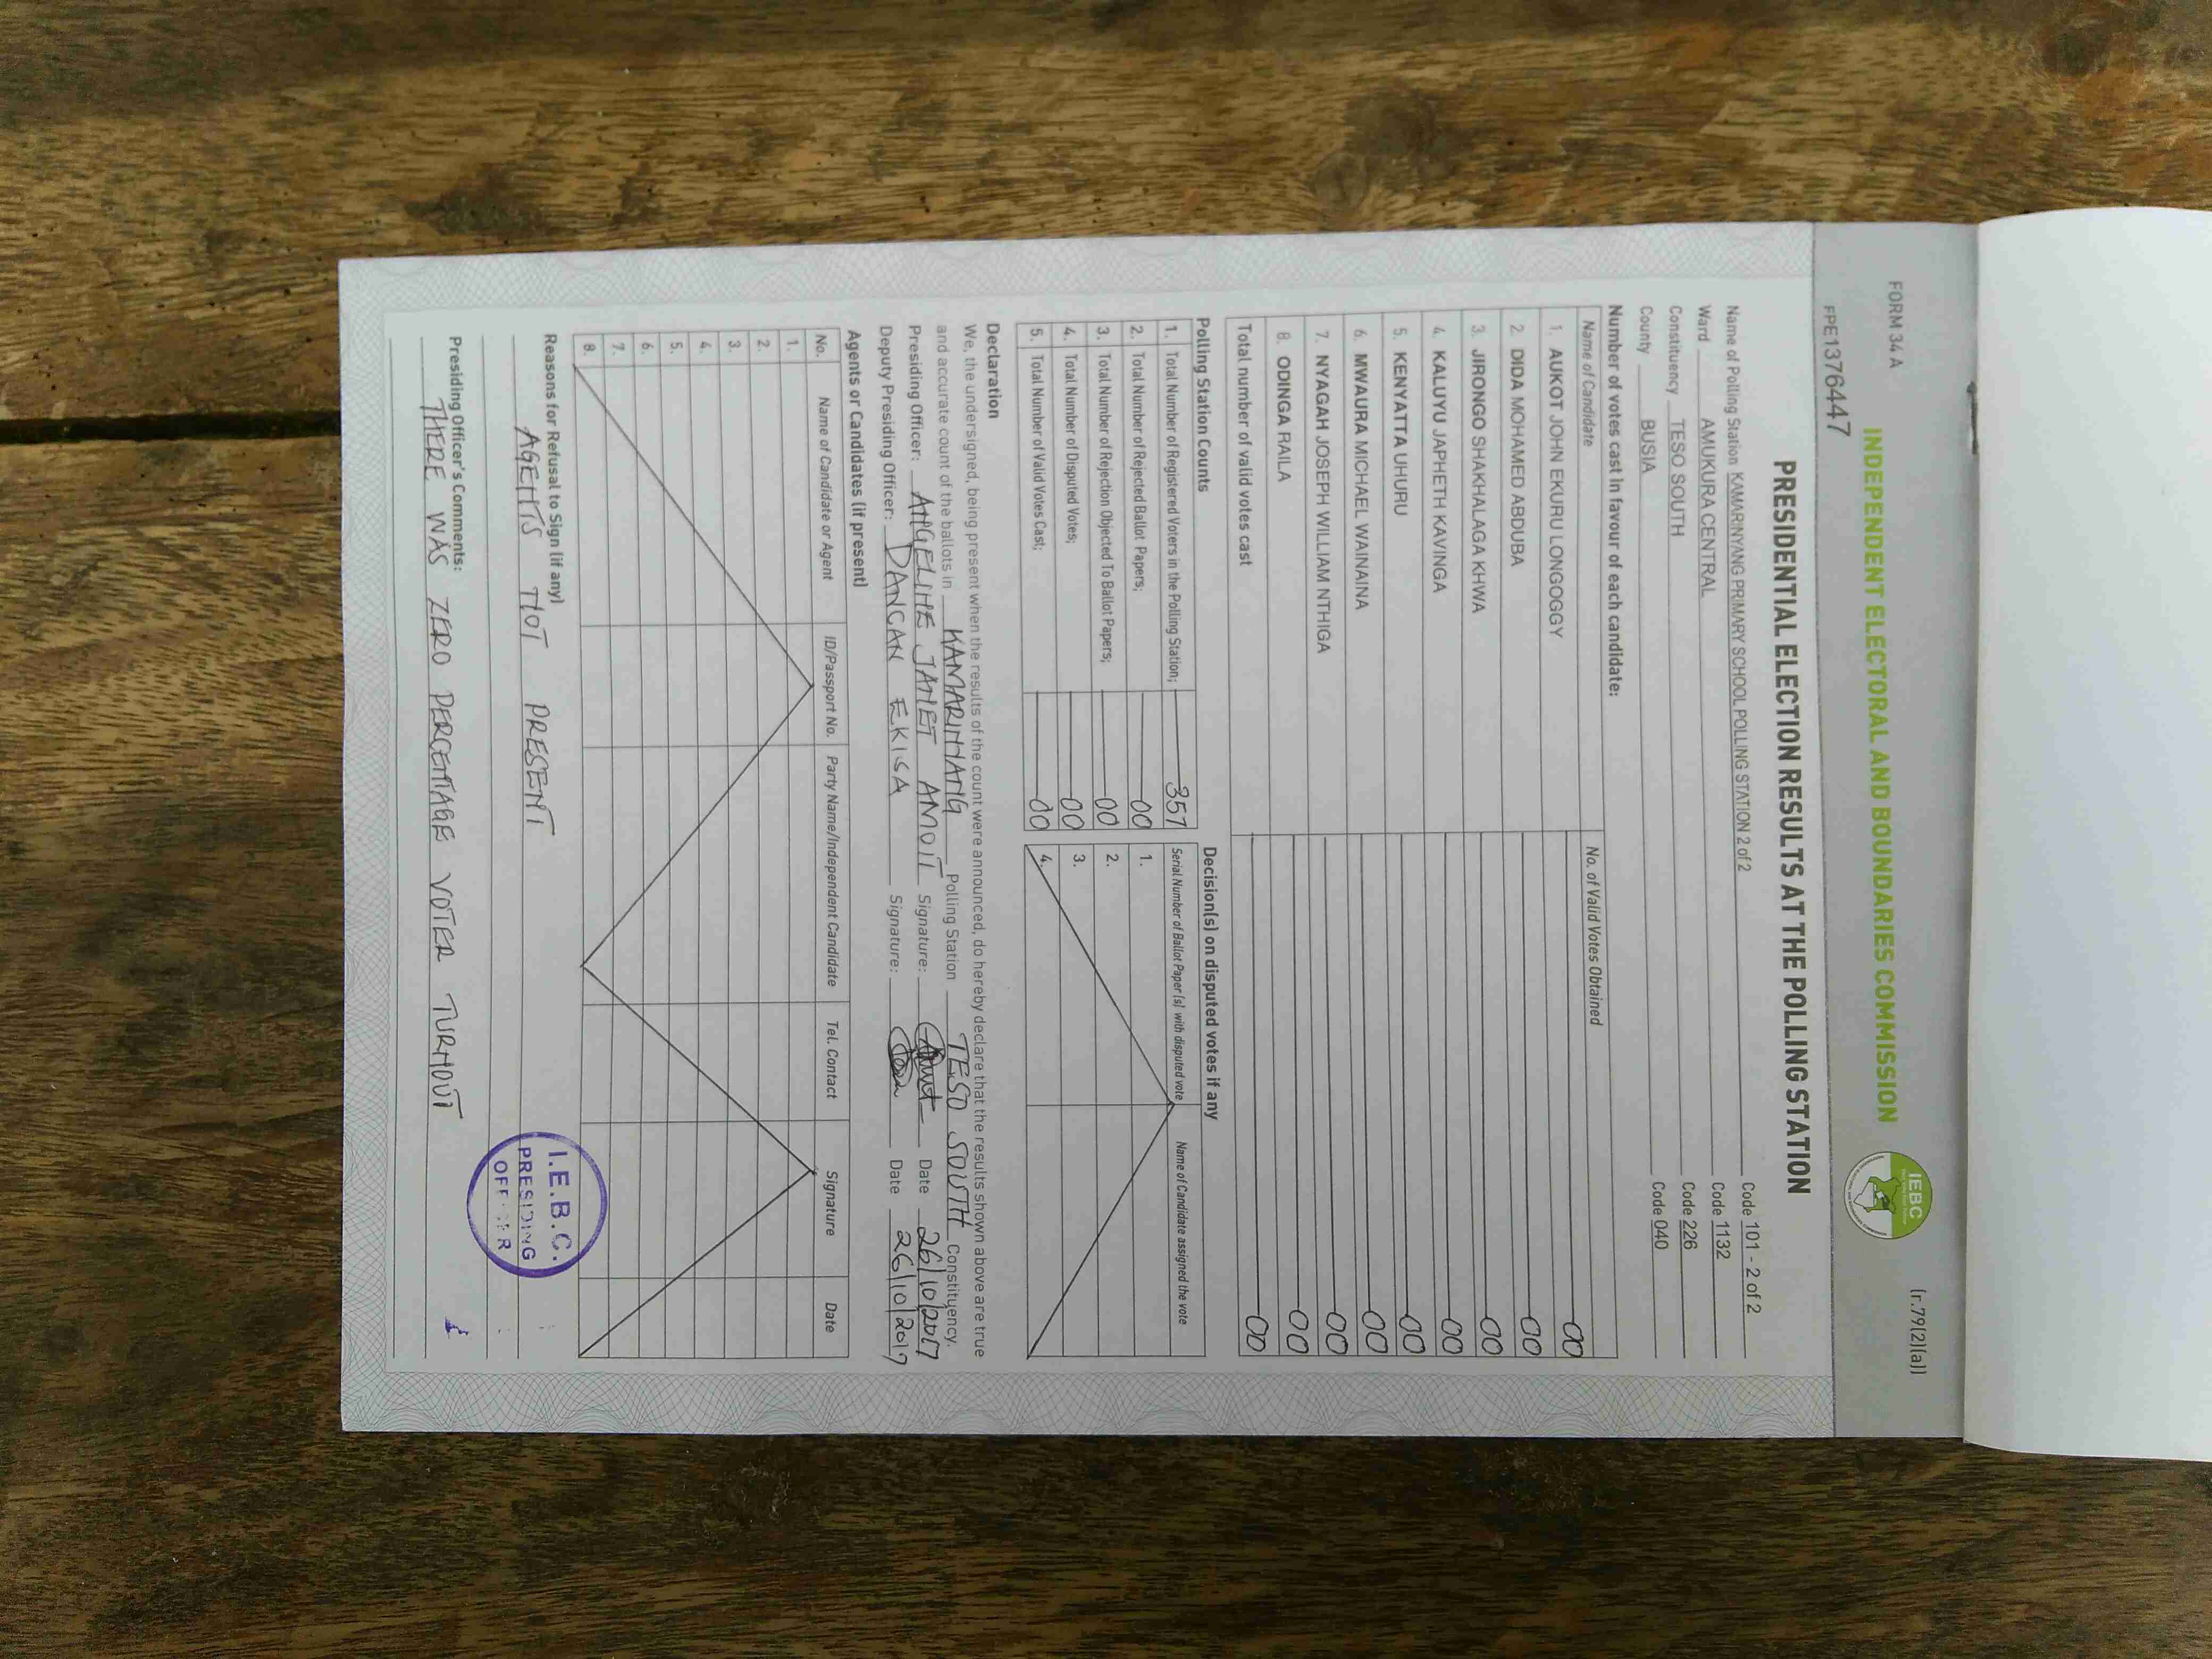 FORM 34 A
(r.79(2)(a))
INDEPENDENT ELECTORAL AND BOUNDARIES COMMISSION
IEBC
FPE1376447
PRESIDENTIAL ELECTION RESULTS AT THE POLLING STATION
Name of Polling Station KAMARINYANG PRIMARY SCHOOL POLLING STATION 2 of 2 Code 101 - 2 of 2
Ward AMUKURA CENTRAL Code 1132
Constituency TESO SOUTH Code 226
County BUSIA Code 040
Number of votes cast in favour of each candidate:
Name of Candidate No. of Valid Votes Obtained
1. AUKOT JOHN EKURU LONGOGGY 00
2. DIDA MOHAMED ABDUBA 00
3. JIRONGO SHAKHALAGA KHWA 00
4. KALUYU JAPHETH KAVINGA 00
5. KENYATTA UHURU 00
6. MWAURA MICHAEL WAINAINA 00
7. NYAGAH JOSEPH WILLIAM NTHIGA 00
8. ODINGA RAILA 00
Total number of valid votes cast 00
Polling Station Counts
1. Total Number of Registered Voters in the Polling Station; 357
2. Total Number of Rejected Ballot Papers; 00
3. Total Number of Rejection Objected To Ballot Papers; 00
4. Total Number of Disputed Votes; 00
5. Total Number of Valid Votes Cast; 00
Decision(s) on disputed votes if any
Serial Number of Ballot Paper (s) with disputed vote Name of Candidate assigned the vote
1.
2.
3.
4.
Declaration
We, the undersigned, being present when the results of the count were announced, do hereby declare that the results shown above are true
and accurate count of the ballots in KAMARINYANG Polling Station TESO SOUTH Constituency.
Presiding Officer: ANGELINE JANET AMOIT Signature: Date 26/10/2017
Deputy Presiding Officer: DANCAN EKISA Signature: Date 26/10/2017
Agents or Candidates (if present)
No. Name of Candidate or Agent ID/Passport No. Party Name/Independent Candidate Tel. Contact Signature Date
1.
2.
3.
4.
5.
6.
7.
8.
Reasons for Refusal to Sign (if any)
AGENTS NOT PRESENT
I.E.B.C.
PRESIDING
OFFICER
Presiding Officer's Comments:
THERE WAS ZERO PERCENTAGE VOTER TURNOUT